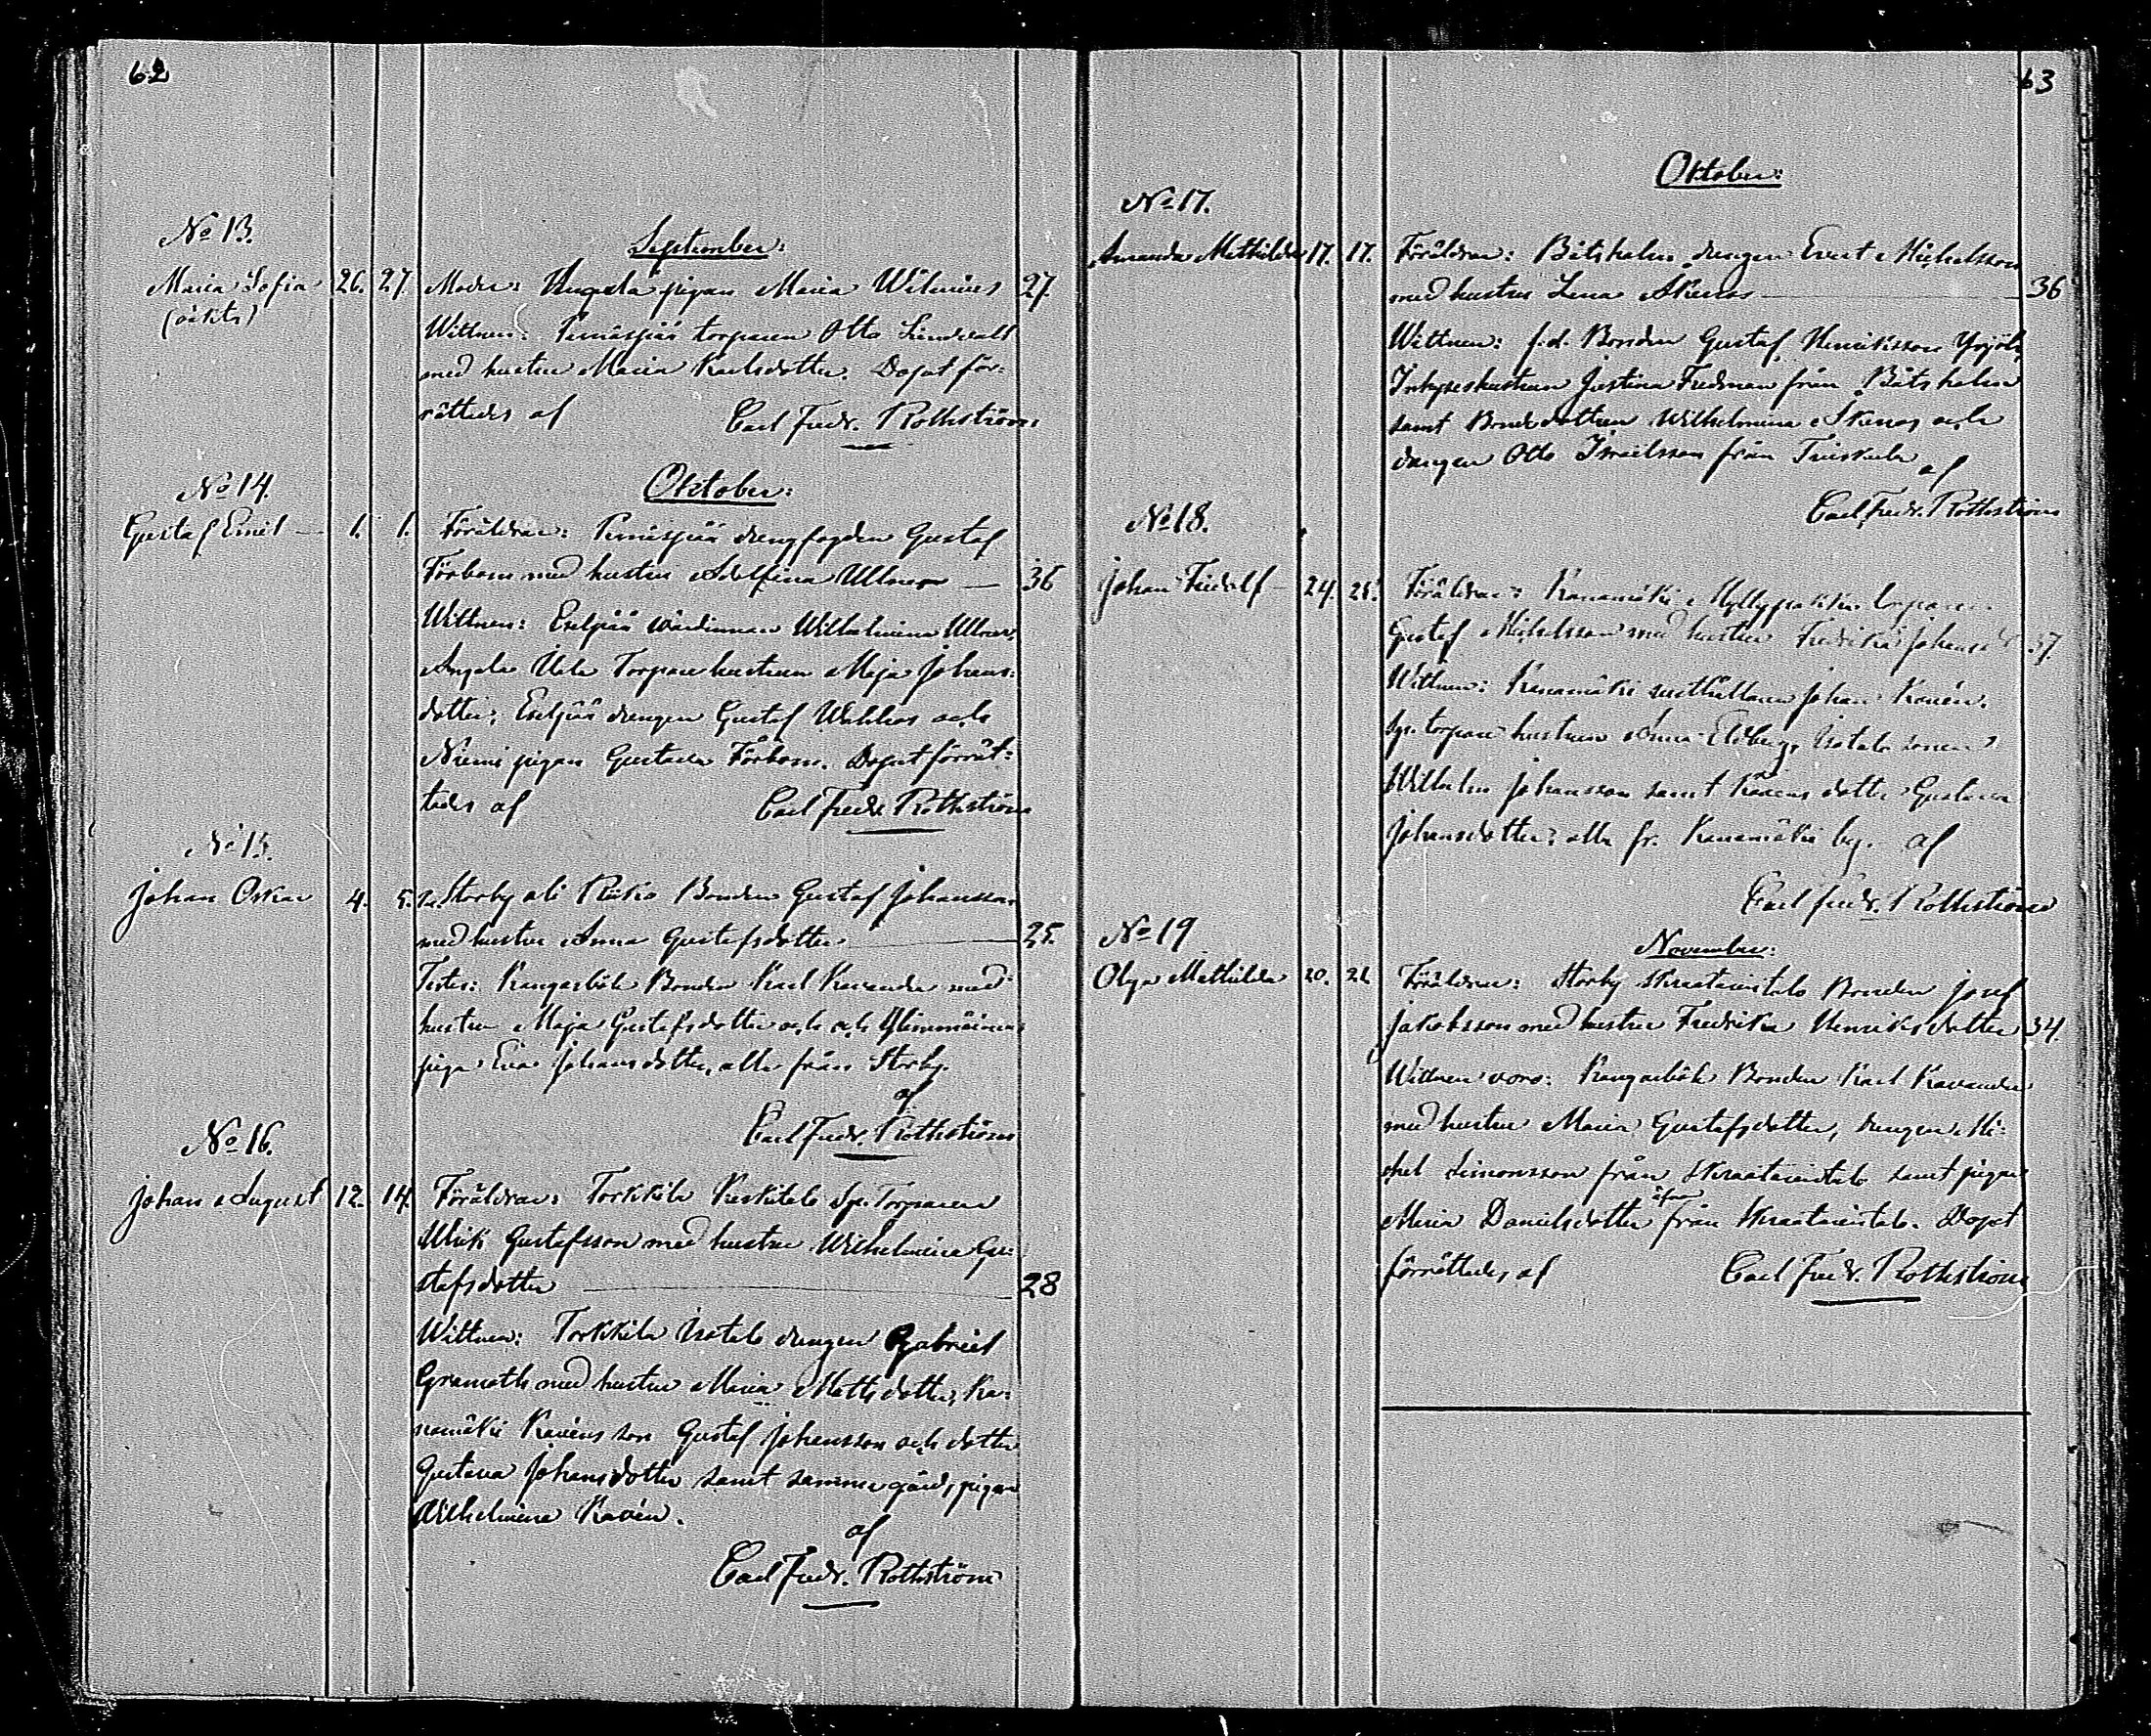 62
No 13.
September:
Maria Sofia 26. 27. Moder: Angela pigan Maria Wilenius 27.
(oäkta)
Wittnen: Pemäspää torparen Otto Lindvall
med hustru Maria Karlsdotter. Dopet för-
rättades af Carl Fredr. Rothström
Oktober:
No 14.
Gustaf Emil 1. 1. Föräldrar: drengfogden Gustaf
Förbom med hustru Adolfina Ullner 36
Wittnen: Eseljää wärdinnan Wilhelmina Ullner,
Angela Torpare hustrun Maja Johans-
dotter, Eseljää drengen Gustaf och
Niemi pigan Gustava Förbom. Dopet förrät-
tades af Carl Fredr. Rothström
No 15.
Johan Oskar 4. 5. Storby ali Bonden Gustaf Johansson
med hustru Anna Gustafsdotter 25.
Testes: Bonden Karl Kavander med
hustru Maja Gustafsdotter och
piga Eva Johansdotter, alla från Storby.
af
Carl Fredr. Rothström
No 16.
Johan August 12. 14. Föräldrar: Torkkila Keskitalo Sp. Torparen
Ulrik Gustafsson med hustru Wilhelmina Gu-
stafsdotter 28
Wittnen: Torkkila Isotalo drengen Gabriel
Gramath med hustru Maria Mattsdotter, Ka-
namäki Kavéns son Gustaf Johansson och dotter
Gustava Johansdotter samt samma gårds pigan
Wilhelmina Kavén.
af
Carl Fredr. Rothström
63
Oktober:
No 17.
Amanda Mathilda 17. 17. Föräldrar: Båtsholm drengen Evert Michelsson
med hustru Lena Åkerros 36
Wittnen: f.d. Bonden Gustaf Henriksson
Inhyseshustrun Justina Fredman från Båtsholm
samt Bondedottren Wilhelmina och
drengen Otto Israelsson från
af
Carl Fredr. Rothström
No 18.
Johan Fridolf 24. 25. Föräldrar: Kanamäki torparen
Gustaf Michelsson med hustru Fredrika Johansd 37.
Wittnen: Kanamäki rusthållaren Johan Kavén,
Sp. torpare hustrun Anna Isotalo sonen
Wilhelm Johansson samt Kavéns dotter Gustava
Johansdotter, alla fr. Kanamäki by. af
Carl Fredr. Rothström
November:
No 19
Olga Mathilda 20. 21. Föräldrar: Storby Bonden Josef
Jakobsson med hustru Fredrika Henriksdotter 34.
Wittnen voro: Bonden Karl Kavander
med hustru Maria Gustafsdotter, drengen Mi-
chel Simonsson från samt pigan
Maria Danielsdotter äfven från Dopet
förrättades af Carl Fredr. Rothström